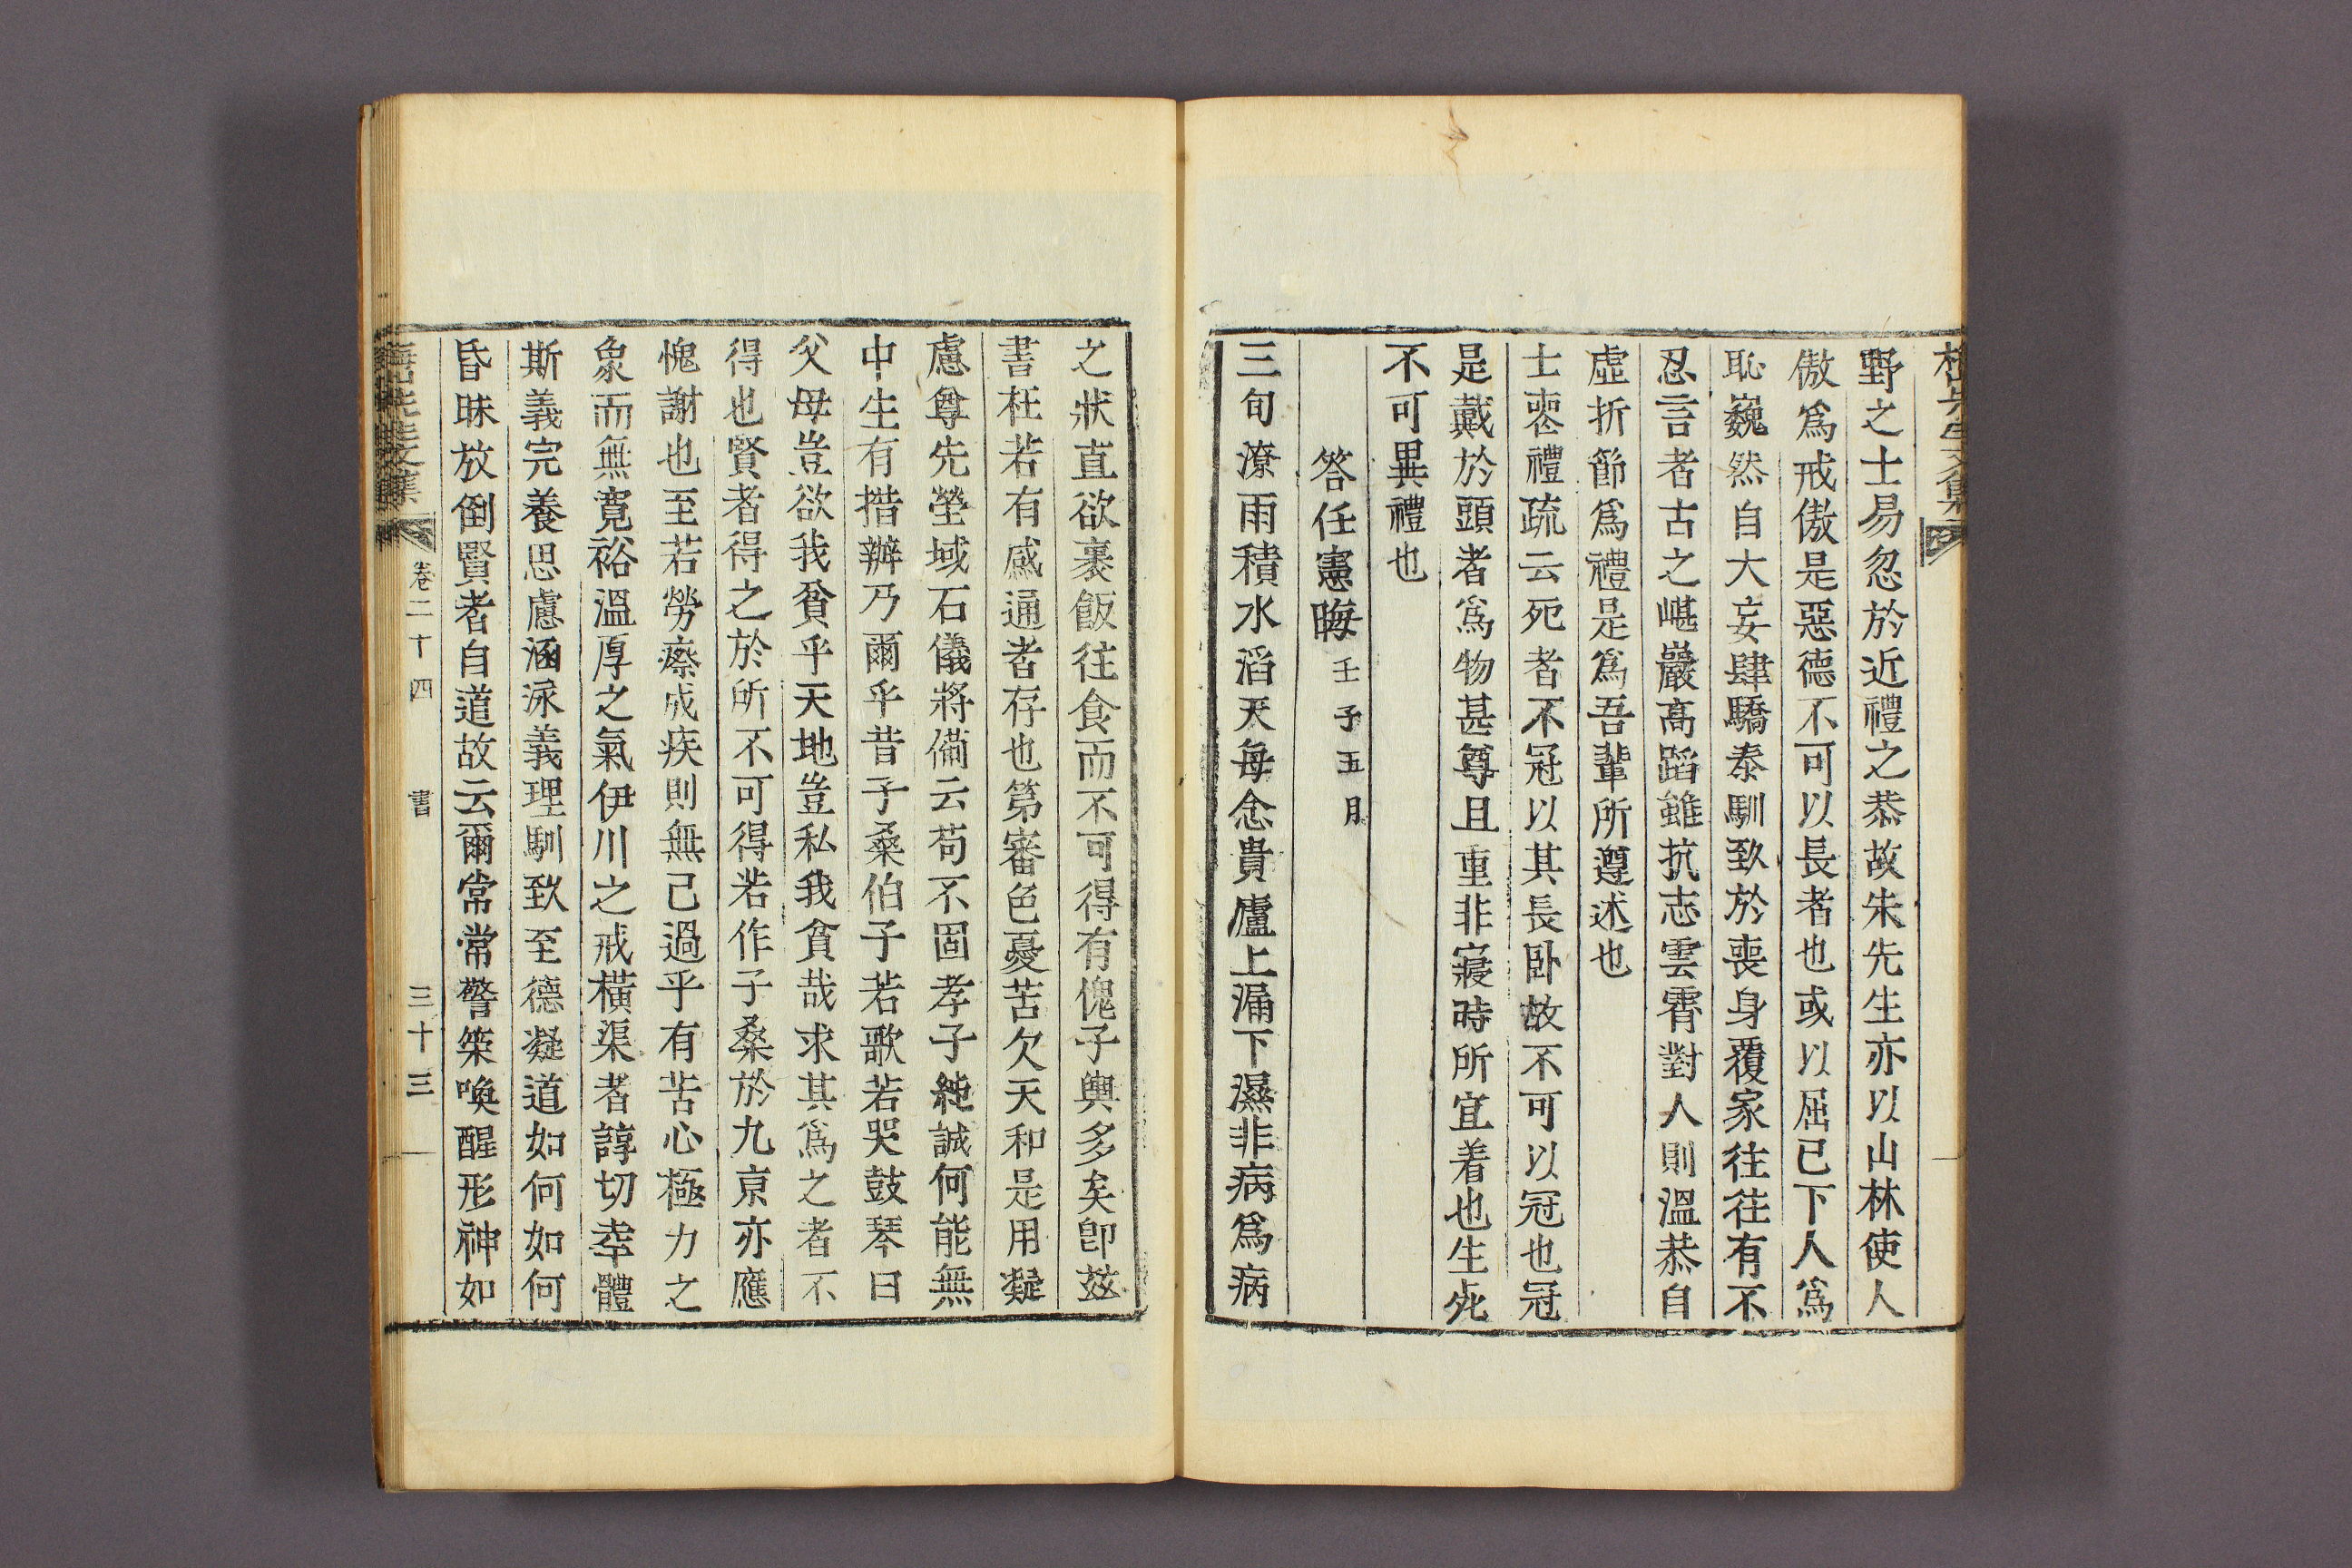 野之士易忽於近禮之恭故朱先生亦以山林使人
傲爲戒傲是惡德不可以長者也或以屈己下人爲
恥巍然自大妄肆驕泰馴致於喪身覆家往往有不
忍言者古之嵁巖高蹈雖抗志雲霄對人則溫恭自
虛折節爲禮是爲吾輩所遵述也
士喪禮疏云死者不冠以其長卧故不可以冠也冠
是戴於頭者爲物甚尊且重非寢時所宜着也生死
不可異禮也
答任憲晦壬子五月
三旬潦雨積水滔天每念貴廬上漏下濕非病爲病
之狀直欲裹飯往食而不可得有愧子輿多矣卽玆
書枉若有感通者存也第審色憂苦欠天和是用凝
慮尊先塋域石儀將備云苟不固孝子純誠何能無
中生有措辦乃爾乎昔子桑伯子若歌若哭鼓琴曰
父母豈欲我貧乎天地豈私我貧哉求其爲之者不
得也賢者得之於所不可得若作子桑於九京亦應
愧謝也至若勞瘵成疾則無已過乎有苦心極力之
象而無寬裕溫厚之氣伊川之戒橫渠者諄切幸體
斯義完養思慮涵泳義理馴致至德凝道如何如何
昏昧放倒賢者自道故云爾常常警策喚醒形神如
卷二十四 書 三十三